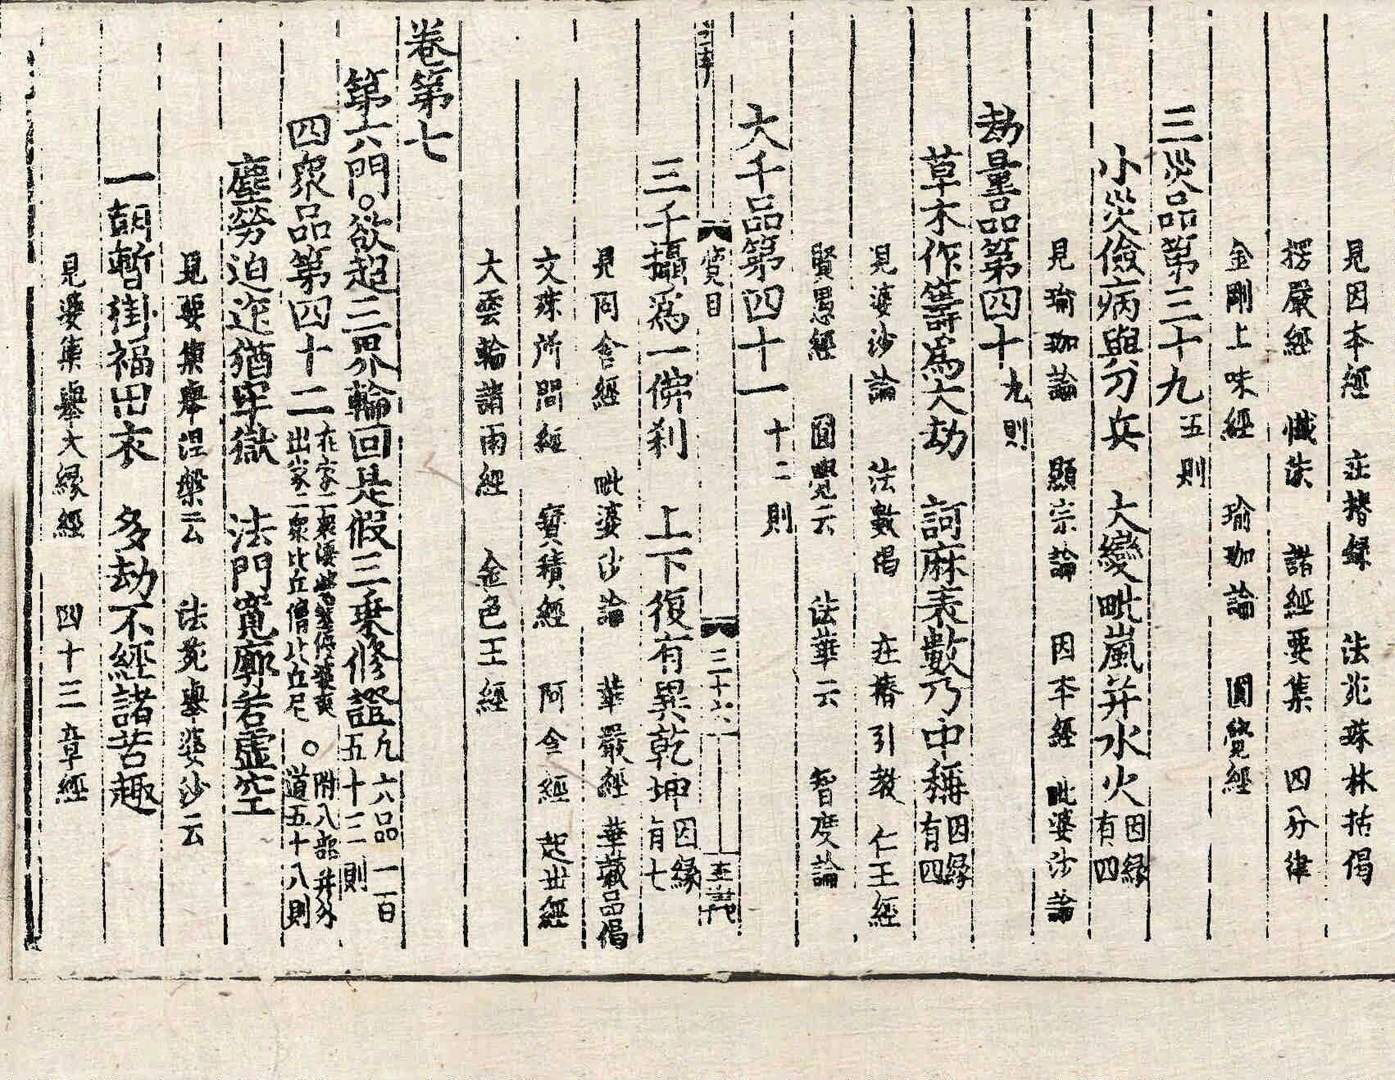 見因本經 在椿縁 法苑珠林括偈
楞嚴經 懺法 諸經要集 四分律
金剛上味經 瑜珈論 圓覺經
三災品第三十九 五則
小災儉病與刀兵 大變毗嵐并水火 因縁有四
見瑜珈論 顯宗論 因本經 毗婆沙論
劫量品第四十 九則
草木作筭為大劫 訶麻表數乃中稱 因縁有四
見婆沙論 法數偈 在椿引教 仁王經
賢愚經 圓覺云 法華云 智度論
大千品第四十一 十二則
三十六
三千攝為一佛刹 上下復有異乾坤 因縁有七
見同含經 毗婆沙論 華嚴經 華藏品偈
文殊所問經 寶積經 阿含經 起世經
大雲輪請雨經 金色王經
卷第七
第六門。欲超三界輪回是假三乗修證 凡六品一百五十三則
四衆品第四十二 在家二衆 出家二衆比丘僧比丘尼 。附八部并外道五十八則
塵勞迫迮猶牢獄 法門寬廓若虛空
見要集舉涅槃云 法苑舉婆沙云
一朝暫掛福田衣 多劫不經諸苦趣
見要集舉大縁經 四十二章經